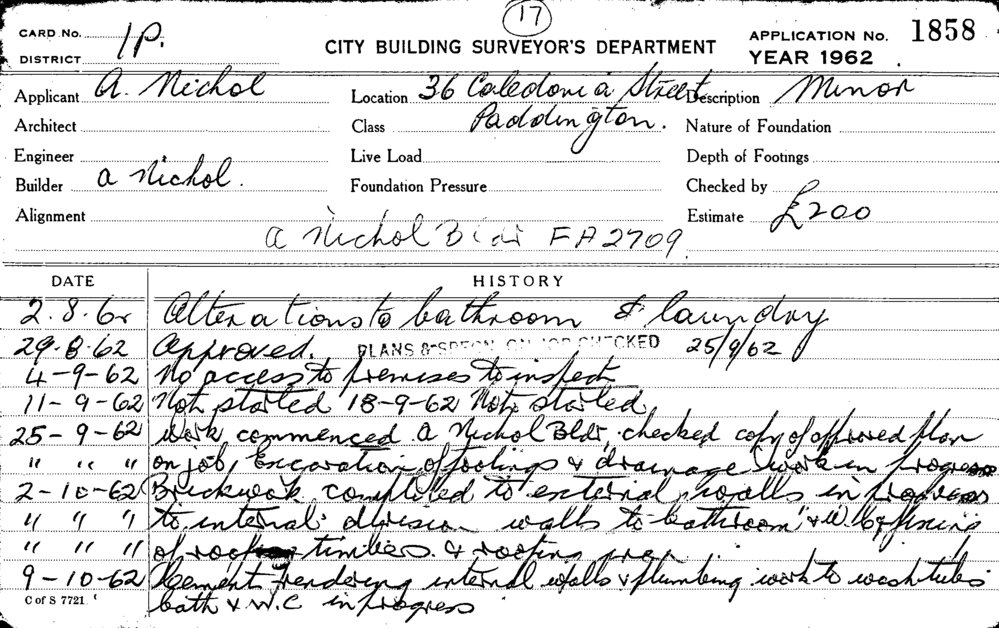 17
CARD No. 1P.
DISTRICT
CITY BUILDING SURVEYOR'S DEPARTMENT
APPLICATION No. 1858
YEAR 1962
Applicant A. Nichol Location 36 Caledonia Street Description Minor
Architect Class Paddington. Nature of Foundation
Engineer Live Load Depth of Footings
Builder A Nichol. Foundation Pressure Checked by
Alignment Estimate £200
A Nichol Bldr FA2709
DATE HISTORY
2.8.62 Alterations to bathroom & laundry
29.8.62 Approved. PLANS & SPECN. ON JOB CHECKED 25/9/62
4-9-62 No access to premises to inspect
11-9-62 Not started 18-9-62 Not started
25-9-62 Work commenced A Nichol Bldr, checked copy of approved plan
" " " on job, Excavation of footings & drainage work in progress
2-10-62 Brickwork completed to external walls in progress
" " " to internal division walls to bathroom & W.C. fixing
" " " of roof timbers & roofing iron
9-10-62 Cement rendering internal walls & plumbing work to washtubs
C of S 7721 bath & W.C in progress